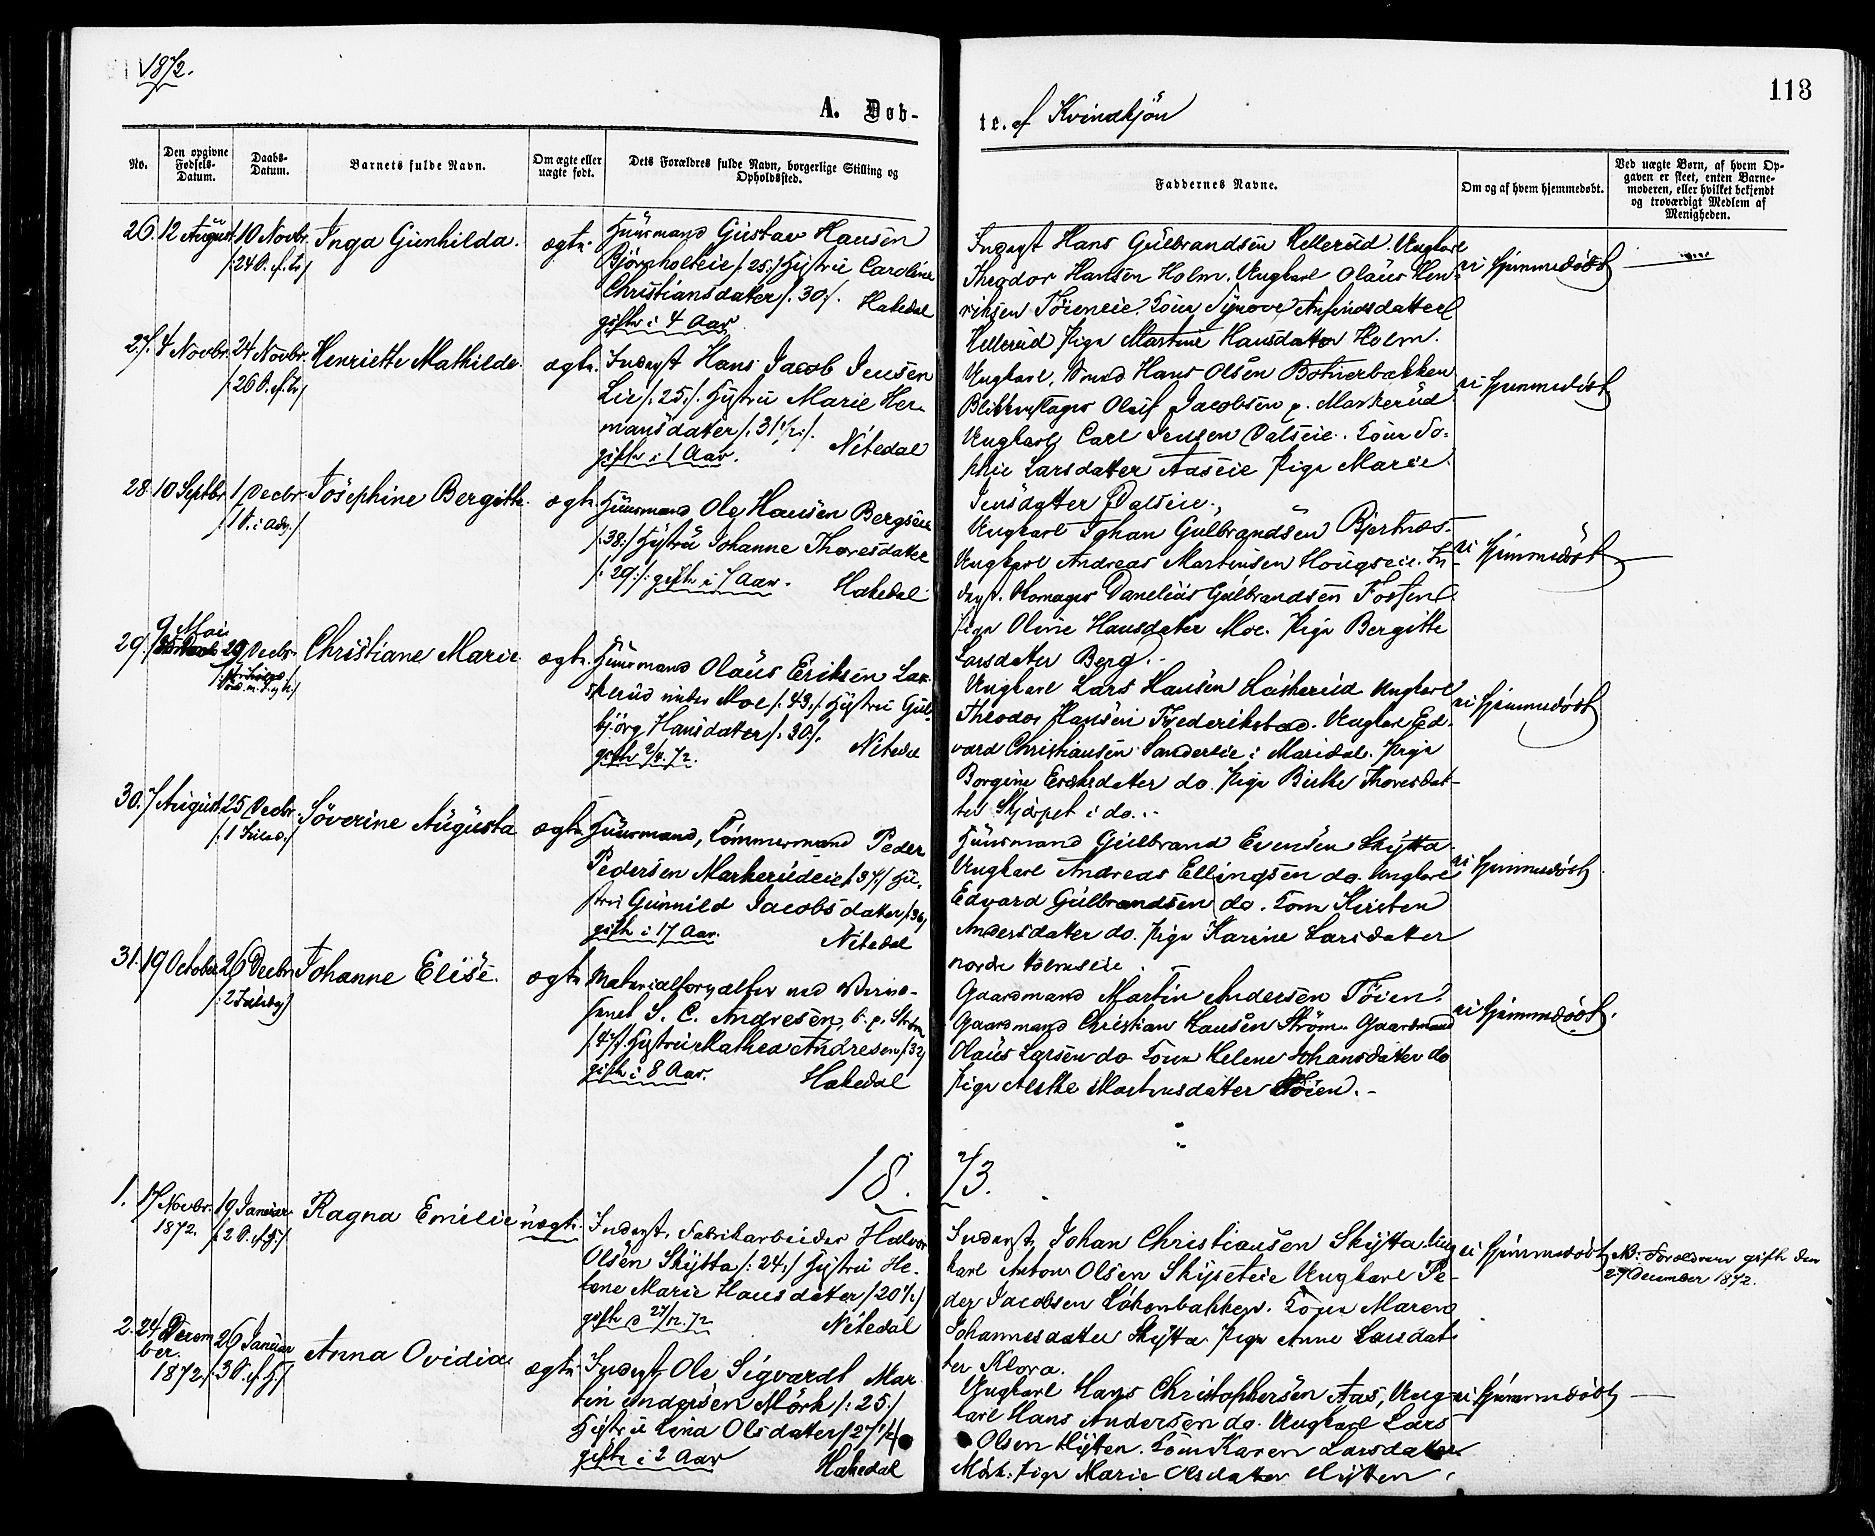 1872.
113
A. Døb-
te. af Kvindkjøn
No.
Den opgivne Fødsels-Datum.
Daabs-Datum.
Barnets fulde Navn.
Om ægte eller uægte født.
Dets Forældres fulde Navn, borgerlige Stilling og Opholdssted.
Faddernes Navne.
Om og af hvem hjemmedøbt.
Ved uægte Børn, af hvem Op-
gaven er skeet, enten Barne-
moderen, eller hvilket bekjendt
og troværdigt Medlem af
Menigheden.
26. 12 August 10 Novbr. Inga Gunhilda. ægte.
/24 S. e. Tr/
Huusmand Gustav Hansen
Bjørnholteie /:25:/ Hustru Caroline
Christiansdatter /:30:/. Hakedal
gifte i 4 Aar
Inderst Hans Gulbrandsen Kellerud. Ungkarl
Theodor Hansen Holm. Ungkarl Olaus Hen-
riksen Tøieneie. Kone Synove Anfinsdatter
Kellerud Pige Martine Hansdatter Holm.
ei hjemmedøbt
27. 4 Novbr. 24 Novbr. Henriette Mathilde. ægte.
/26 S. e. Tr/
Inderst Hans Jacob Jensen
Lie /:25:/. Hustru Marie Her-
mansdatter /:31½:/.
gifte i 1 Aar. Nitedal
Ungkarl, Smed Hans Olsen Botnerbakken
Blikkenslager Oluf Jacobsen p. Markerud
Ungkarl Carl Jensen Dalseie. Kone So-
phie Larsdatter Aaseie Pige Marie
Jensdatter Dalseie.
ei hjemmedøbt
28. 10 Septbr. 1 Decbr. Josephine Bergitte. ægte.
/:1 S. i Adv:/
Huusmand Ole Hansen Bergseie
/:38:/ Hustru Johanne Thoresdatter
/:29:/: gifte i 1 Aar. Hakedal
Ungkarl Johan Gulbrandsen Bjertnæs-
Ungkarl Andreas Martinsen Hougseie. In-
derst. Danelius Gulbrandsen Fossen
Pige Oline Hansdatter Moe. Pige Bergitte
Larsdatter Berg.
ei hjemmedøbt
29. 9 Mai 29 Decbr. Christiane Marie. ægte.
Huusmand Olaus Eriksen Las-
kerud under Moe /:43:/. Hustru Gul-
bjørg Hansdatter /:30:/.
gifte 2/11.72. Nitedal
Ungkarl Lars Hansen Laskerud Ungkarl
Theodor Hansen Frederikstad. Ungkarl Ed-
vard Christiansen Sandereie i Maridal. Pige
Borgine Eriksdatter do. Pige Birthe Thoresdat-
ter Skjerpet i do.
ei hjemmedøbt
30. 7 August 25 Decbr. Søverine Augusta ægte
/:1 Juled:/
Huusmand, Tømmermand Peder
Pedersen Markerudeie /:37:/ Hu-
stru Gunnild Jacobsdatter /:36/
gifte i 17 Aar. Nitedal
Huusmand Gulbrand Evensen Skytta
Ungkarl Andreas Ellingsen do. Ungkarl
Edvard Gulbrandsen do. Kone Kirsten
Andersdatter do. Pige Karine Larsdatter
nordre Holmseie.
ei hjemmedøbt
31. 19 October 26 Decbr. Johanne Elise. ægte
/:2 Juledag/
Materialforvalter ved
J. C. Andresen, b. p. Strøm
/:47/. Hustru Mathea Andresen /:32/
gifte i 8 Aar. Hakedal
Gaardmand Martin Andersen Tøien.
Gaardmand Christian Hansen Strøm. Gaardmand
Olaus Larsen do Kone Helene Johansdatter do
Pige Alethe Martinsdatter Tøien.
ei hjemmedøbt.
18 73.
1. 17 Novbr. 1872. 19 Januar. Ragna Emilie uægte.
/:2 S. e. H:/
Inderst, Fabrikarbeider Halvor
Olsen Skytta /:24:/ Hustru He-
lene Marie Hansdatter /:20½/
gifte d 27/12.72 Nitedal
Inderst, Johan Christiansen Skytta. Ung-
karl Anton Olsen Skytteie Ungkarl Pe-
der Jacobsen Løkenbakken. Kone Maren
Johannesdatter Skytta Pige Anne Larsdat-
ter Klova.
ei hjemmedøbt NB. Forældrene gifte den
27 December 1872.
2. 24 Decem- 26 Januar Anna Ovidia. ægte
ber.
1872. /:3 S. e. H/
Inderst, Ole Sigvardt Mar-
tin Andersen Mørk /:25:/
Hustru Lina Olsdatter /27½/
gifte i 2 Aar Hakedal
Ungkarl Hans Christophersen Aas, Ung-
karl Hans Andersen do. Ungkarl Lars
Olsen Hytten. Kone Karen Larsdatter
Mørk. Pige Marie Olsdatter Hytten.
ei hjemmedøbt